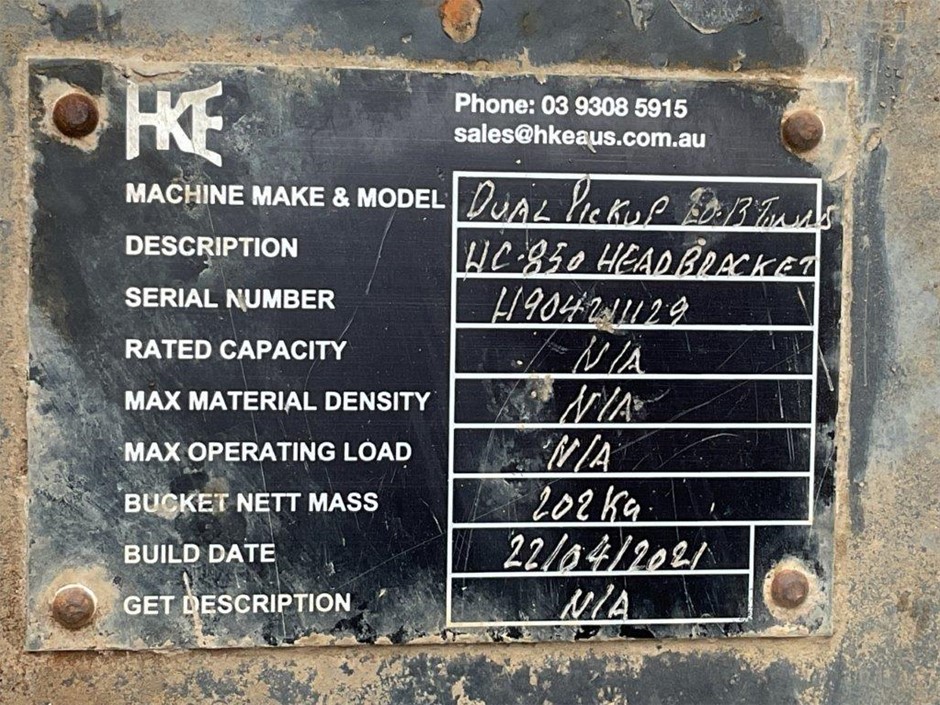 HKE
Phone: 03 9308 5915
sales@hkeaus.com.au
MACHINE MAKE & MODEL DUAL PICKUP
DESCRIPTION HC-850 HEADBRACKET
SERIAL NUMBER H904211129
RATED CAPACITY N/A
MAX MATERIAL DENSITY N/A
MAX OPERATING LOAD N/A
BUCKET NETT MASS 202Kg
BUILD DATE 22/04/2021
GET DESCRIPTION N/A